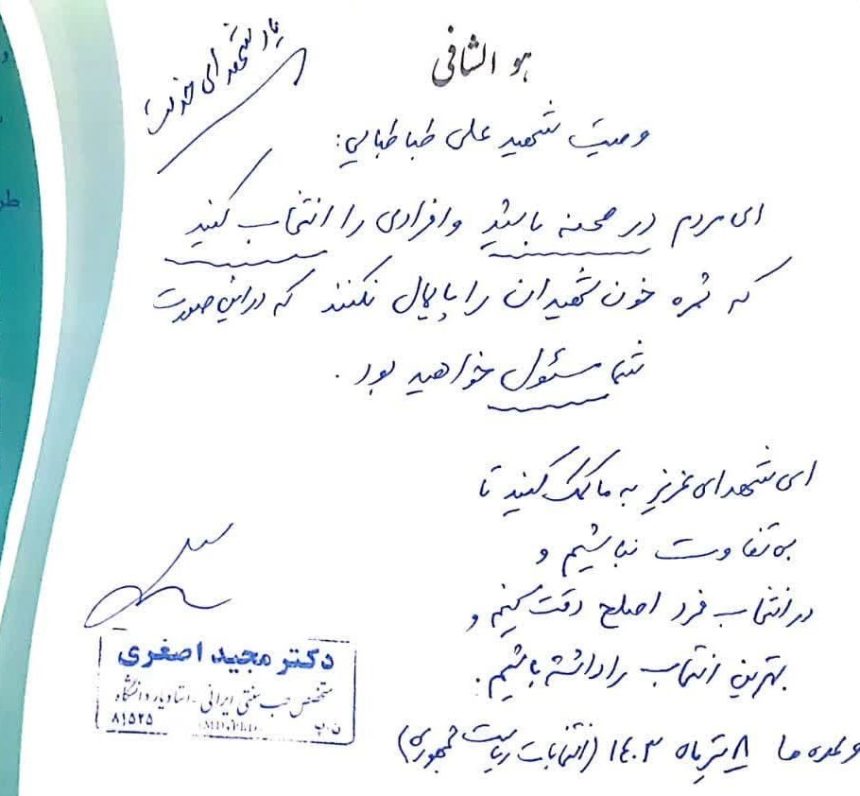 هو الشافی
یاد شهدای خدمت
وصیت شهید علی طباطبایی:
ای مردم در صحنه باشید و افرادی را انتخاب کنید
که ثمره خون شهیدان را پایمال نکنند که در این صورت
شما مسئول خواهید بود.
ای شهدای عزیز به ما کمک کنید تا
بی تفاوت نباشیم و
در انتخاب فرد اصلح دقت کنیم و
بهترین انتخاب را داشته باشیم.
وعده ما ۸ تیرماه ۱۴۰۳ (انتخابات ریاست جمهوری)
دکتر مجید اصغری
متخصص طب سنتی ایرانی - استادیار دانشگاه
ن.پ ۸۱۵۲۵